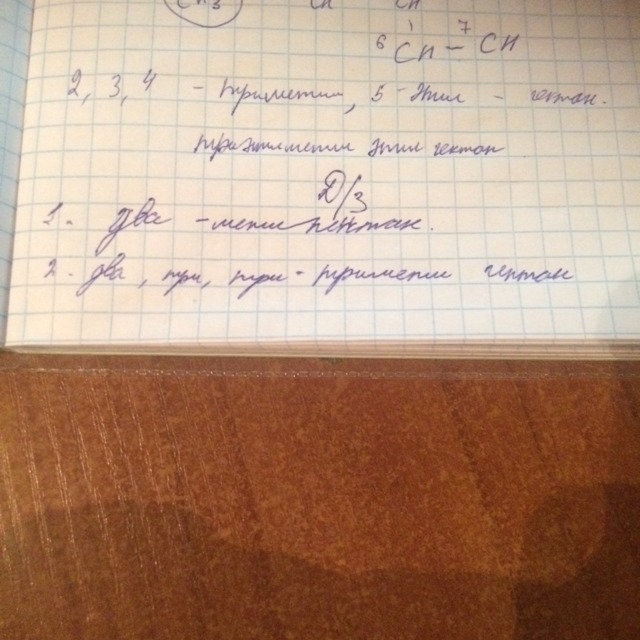 CH3 CH CH
6 CH – 7 CH
2, 3, 4 – триметил, 5 – этил – гептан.
этил гептан
Д/з
1. два – метилпентан.
2. два, три, три – триметил гептан